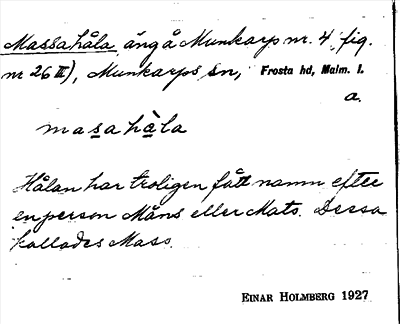 Massahåla, äng å Munkarp nr. 4, fig.
nr 26 II), Munkarps sn, Frosta hd, Malm. l.
a.
masahàla
Hålan har troligen fått namn efter
en person Måns eller Mats. Dessa
kallades Mass.
EINAR HOLMBERG 1927